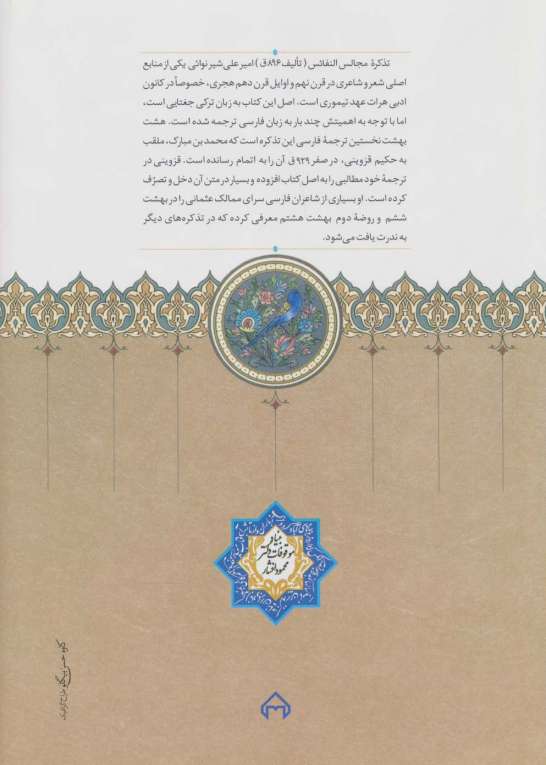 تذکرهٔ مجالس النفائس (تألیف ۸۹۶ق) امیر علی شیر نوائی یکی از منابع
اصلی شعر و شاعری در قرن نهم و اوایل قرن دهم هجری، خصوصاً در کانون
ادبی هرات عهد تیموری است. اصل این کتاب به زبان ترکی جغتایی است،
اما با توجه به اهمیتش چند بار به زبان فارسی ترجمه شده است. هشت
بهشت نخستین ترجمهٔ فارسی این تذکره است که محمد بن مبارک، ملقب
به حکیم قزوینی، در صفر ۹۲۹ ق آن را به اتمام رسانده است. قزوینی در
ترجمهٔ خود مطالبی را به اصل کتاب افزوده و بسیار در متن آن دخل و تصرّف
کرده است. او بسیاری از شاعران فارسی سرای ممالک عثمانی را در بهشت
ششم و روضهٔ دوم بهشت هشتم معرفی کرده که در تذکره‌های دیگر
به ندرت یافت می‌شود.
بنیاد
موقوفات دکتر
محمود افشار